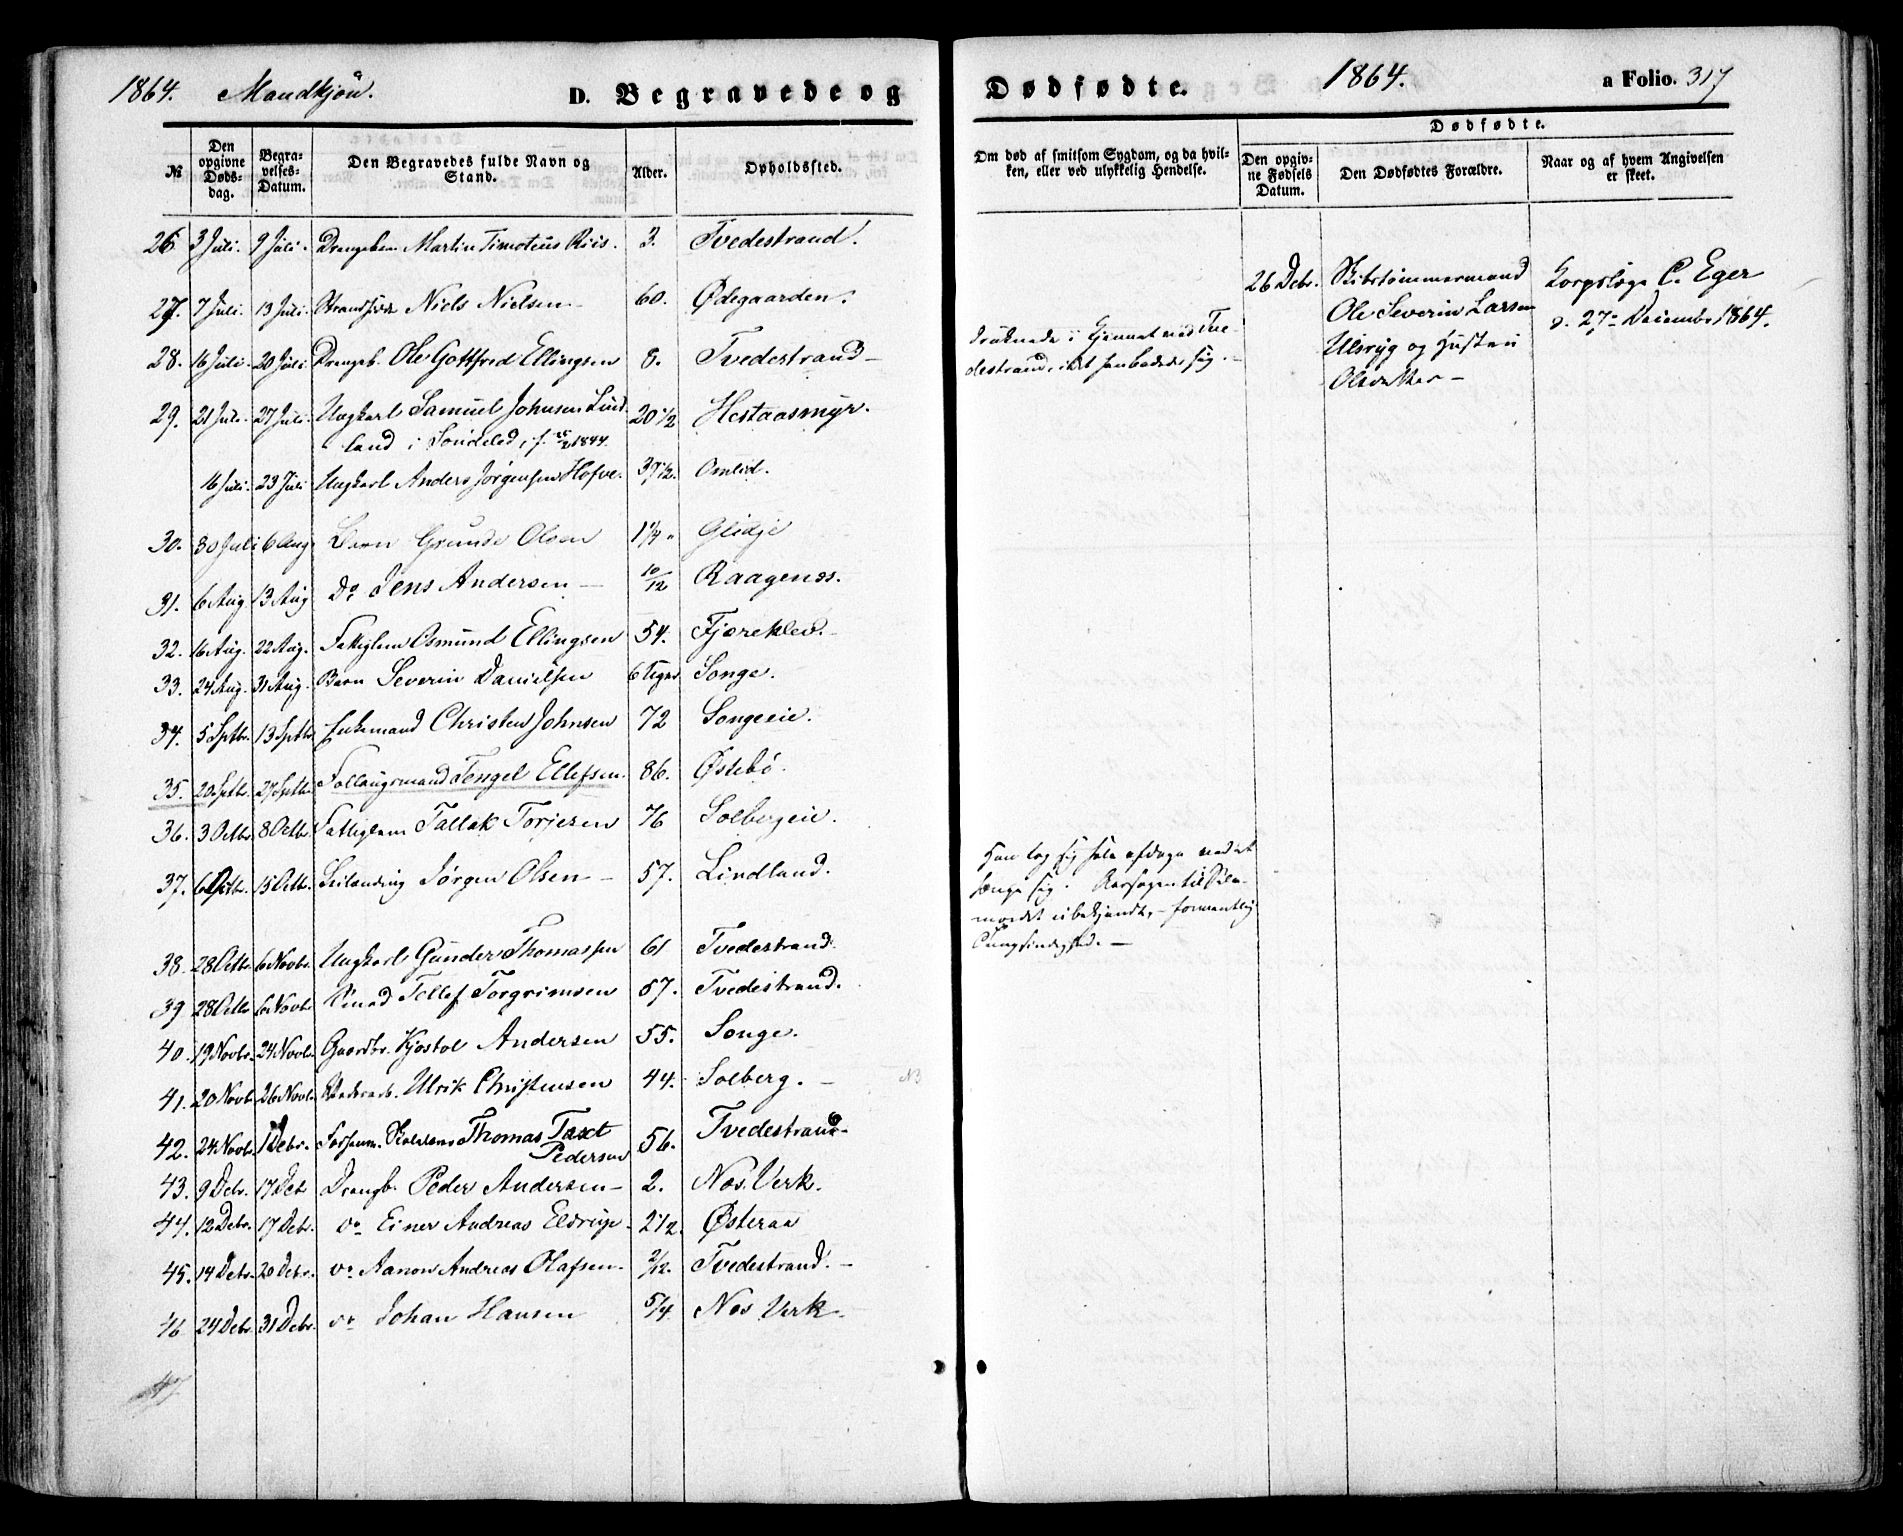 1864. Mandkjön. D. Begravede og Dødfødte. 1864. a Folio. 317
№
Den opgivne Døds-dag.
Begra-velses-Datum.
Den Begravedes fulde Navn og Stand.
Alder.
Opholdssted.
Om død af smitsom Sygdom, og da hvil-
ken, eller ved ulykkelig Hendelse.
Dødfødte.
Den opgiv-ne Fødsels Datum.
Den Dødfødtes Forældre.
Naar og af hvem Angivelsen er skeet.
26 3 Juli. 9 Juli. Drengebn Martin Timoteus Riis. 3. Tvedestrand.
27. 7 Juli. 13 Juli. Niels Nielsen 60. Ødegaarden.
28. 16 Juli. 20 Juli. Drengeb. Ole Gottfred Ellingsen 8. Tvedestrand
druknede i Tve-
destrand, idet han badede sig.
29. 21 Juli. 27 Juli. Ungkarl Samuel Johnsen Lind- 20 1/2 Hestaasmyr.
land i Söndeled, f. 1844.
16 Juli. 23 Juli Ungkarl Anders Jørgensen Hofve. 37 1/2. Omlid.
30. 30 Juli 6 Aug Barn Grunde Olsen 1 1/4 Glidje
31. 6 Aug 13 Aug Do Jens Andersen 10/12 Raagenes.
32. 16 Aug. 22 Aug. Fattiglem Osmund Ellingsen 54. Fjæreklev.
33. 24 Aug. 31 Aug. Barn Severin Danielsen 6 Uger Songe.
34. 5 Sptbr. 13 Sptbr. Enkemand Christen Johnsen 72 Songeeie.
35. 20 Sptbr. 27 Sptbr. Follaugsmand Tengel Ellefsen. 86. Østebö.
36. 3 Octbr. 8 Octbr. Fattiglem Tallak Torjesen 76 Solbergeie.
37. 6 Octbr. 15 Octbr. Jørgen Olsen 57. Lindland.
Han tog sig selv afdage ved at
hænge sig. Aarsagen til Selv-
mordet ubekjendt, formentlig
Tungsindighed.
38. 28 Octbr. 6 Novbr. Ungkarl Gunder Thomassen 61 Tvedestrand.
39 28 Octbr 6 Novbr. Tellef Torgrimsen 57. Tvedestrand.
40. 19 Novbr. 24 Novbr. Gaardbr. Kjøstol Andersen 55. Songe.
41. 20 Novbr. 26 Novbr. Ulrik Christensen 44. Solberg. NB
42. 24 Novbr. 1 Debr. Thomas Taxt 56. Tvedestrand
Pedersen
43. 9 Debr. 17 Deb Drengb. Peder Andersen 2. Nes Verk.
44. 12 Debr. 17 Debr. do Einer Andreas Eldrup 2 1/2. Østeraa
45. 14 Debr. 20 Debr. do Aanon Andreas Olafsen 2/12. Tvedestrand.
46 24 Debr. 31 Debr. do Johan Hansen 5/4. Nes Verk.
47
26 Debr. Skibstømmermand
Ole Severin Larsen
Ulsryg og Hustru
Olsdatter
Korpslæge C. Eger
d. 27de December 1864.